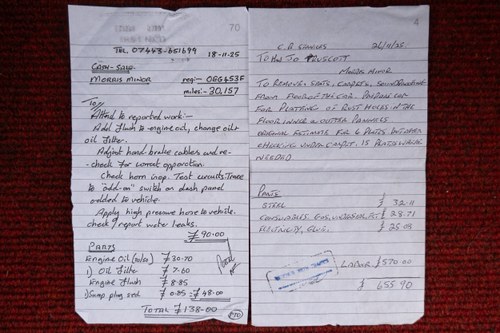 70
TEL. 07453-651699 18-11-25
CASH-SALE.
MORRIS MINOR regi:- OEG453F
miles:- 30,157
To//
Attend to reported work:-
Add flush to engine oil, change oil &
oil filter.
Adjust hand-brake cables and re-
-check for correct opperation.
Check horn inop. Test circuits. Trace
to "add-on" switch on dash panel
added to vehicle.
Apply high pressure hose to vehicle.
check & report water leaks.
£90.00
PARTS
Engine Oil £30-70
1) Oil Filter £7-60
Engine Flush £8-85
1) Sump plug seal £0-85 = £48=00
TOTAL £138=00
4
26/11/25
TO
MORRIS MINOR
TO REMOVE SEATS, CARPETS, SOUNDPROOFING
MAIN FLOOR OF THE CAR. PREPARE CAR
FOR PLATING OF RUST HOLES IN THE
FLOOR INNER & OUTER PANNELS
ORIGINAL ESTIMATE FOR 6 PLATES BUT WHEN
CHECKING UNDER CARPIT. 15 PLATES WHERE
NEEDED
PARTS
STEEL £ 32.11
CONSUMABLES, GAS, £ 28.71
£ 25.08
LABOUR £570.00
£ 655.90